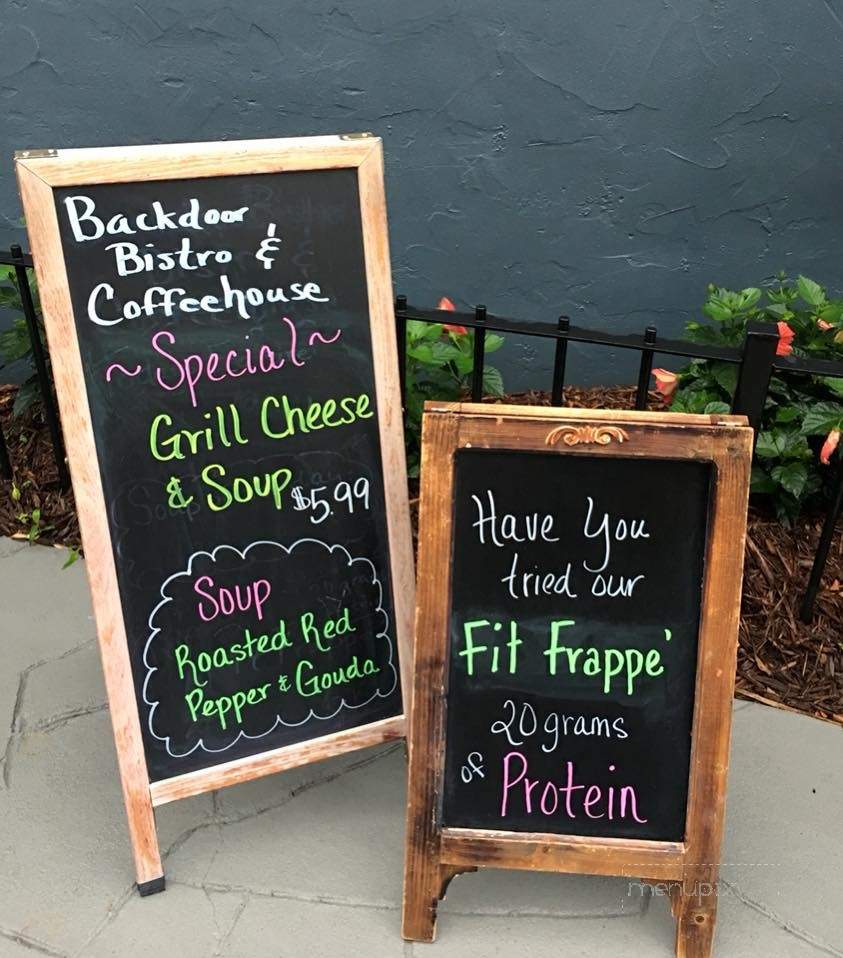 Backdoor
Bistro &
Coffeehouse
~Special~
Grill Cheese
& Soup $5.99
Soup
Roasted Red
Pepper & Gouda
Have You
tried our
Fit Frappe'
20 grams
of Protein
menupix